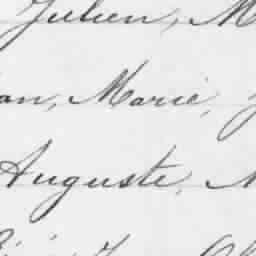 Julien, M
an, Marie,
Auguste,